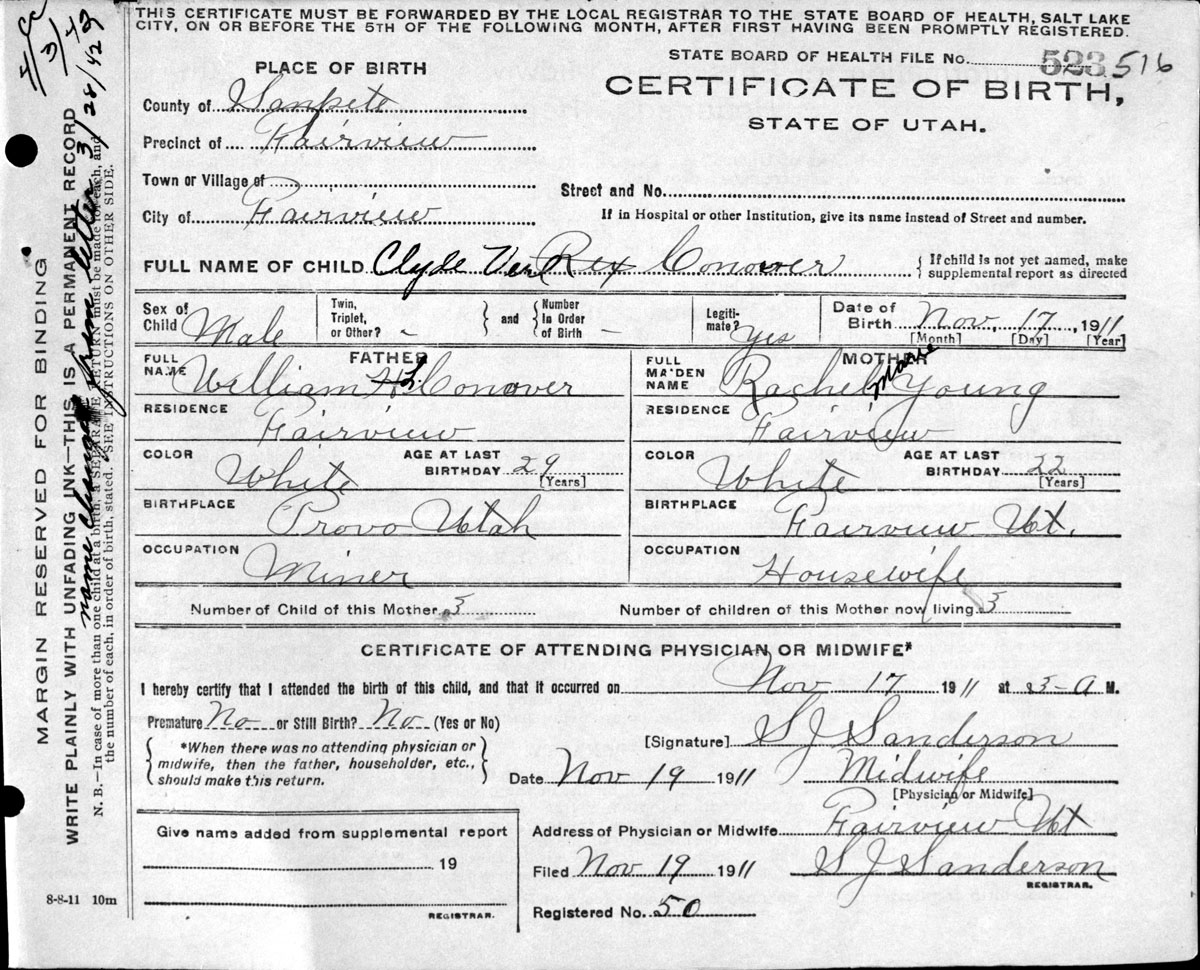 THIS CERTIFICATE MUST BE FORWARDED BY THE LOCAL REGISTRAR TO THE STATE BOARD OF HEALTH, SALT LAKE
CITY, ON OR BEFORE THE 5TH OF THE FOLLOWING MONTH, AFTER FIRST HAVING BEEN PROMPTLY REGISTERED.
STATE BOARD OF HEALTH FILE No. 523 516
PLACE OF BIRTH
CERTIFICATE OF BIRTH,
STATE OF UTAH.
County of Sanpete
Precinct of Fairview
Town or Village of
Street and No.
City of Fairview
If in Hospital or other Institution, give its name instead of Street and number.
FULL NAME OF CHILD Clyde Van Rex Conover
{ If child is not yet named, make
supplemental report as directed
Sex of Child Male
Twin, Triplet, or Other? -
} and {
Number In Order of Birth -
Legitimate? Yes
Date of Birth Nov. 17, 1911
[Month] [Day] [Year]
FATHER
FULL NAME William H L Conover
RESIDENCE Fairview
COLOR White
AGE AT LAST BIRTHDAY 29
[Years]
BIRTHPLACE Provo Utah
OCCUPATION Miner
MOTHER
FULL MAIDEN NAME Rachel Marie Young
RESIDENCE Fairview
COLOR White
AGE AT LAST BIRTHDAY 22
[Years]
BIRTHPLACE Fairview Ut.
OCCUPATION Housewife
Number of Child of this Mother 3
Number of children of this Mother now living 3
CERTIFICATE OF ATTENDING PHYSICIAN OR MIDWIFE*
I hereby certify that I attended the birth of this child, and that it occurred on Nov 17 1911 at 3-A M.
Premature No or Still Birth? No (Yes or No)
{ *When there was no attending physician or
midwife, then the father, householder, etc.,
should make this return. }
[Signature] S J Sanderson
Date Nov 19 1911 Midwife
[Physician or Midwife]
Give name added from supplemental report
19
REGISTRAR.
Address of Physician or Midwife Fairview Ut
Filed Nov 19 1911 S J Sanderson
REGISTRAR.
Registered No. 50
8-8-11 10m
MARGIN RESERVED FOR BINDING
WRITE PLAINLY WITH UNFADING INK—THIS IS A PERMANENT RECORD
N. B.—In case of more than one child at a birth, a SEPARATE RETURN must be made for each, and
the number of each, in order of birth, stated. SEE INSTRUCTIONS ON OTHER SIDE.
name changed from letter 3/28/42